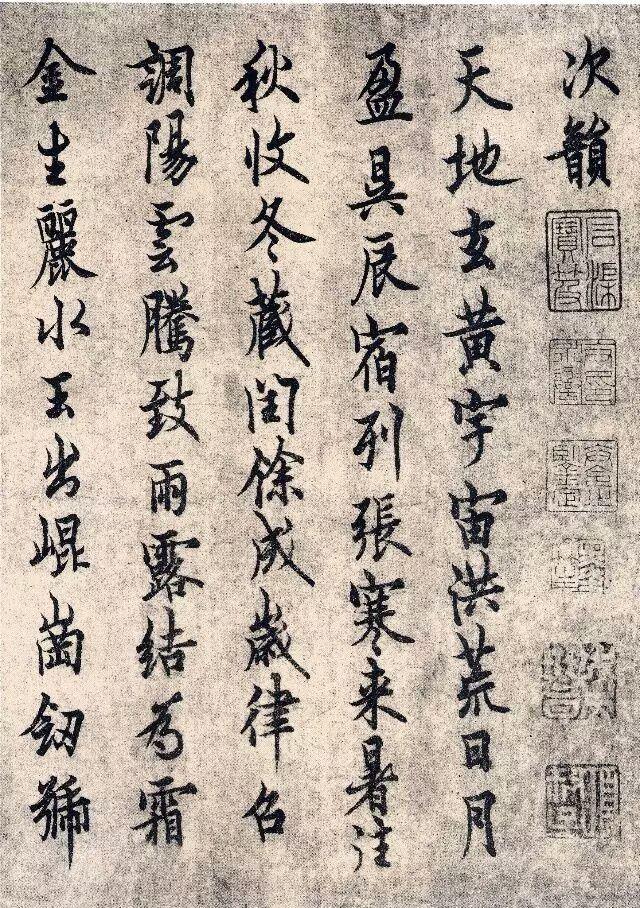 次韻
石渠寶笈
天地玄黄宇宙洪荒日月
盈昃辰宿列張寒来暑往
秋收冬藏閏餘成歲律召
調陽雲騰致雨露結為霜
金生麗水玉出崐崗劒號